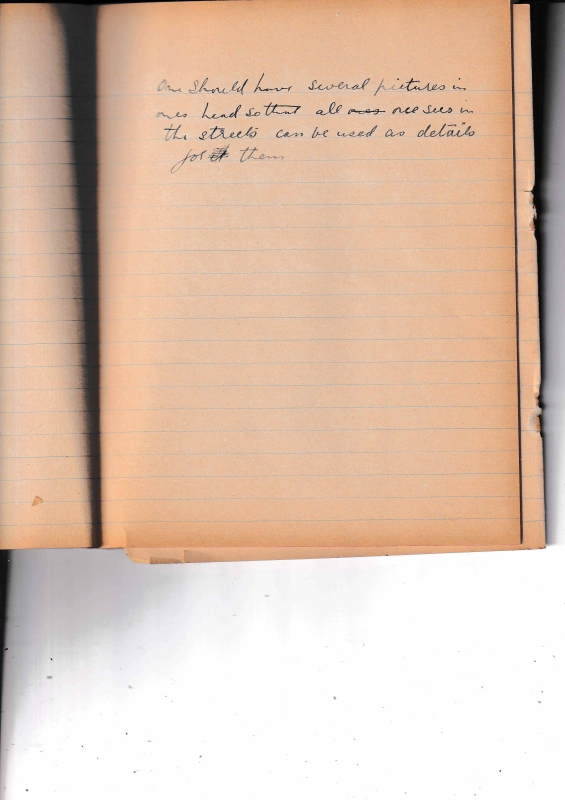 One should have several pictures in
ones head so that all ones one sees in
the streets can be used as details
for them